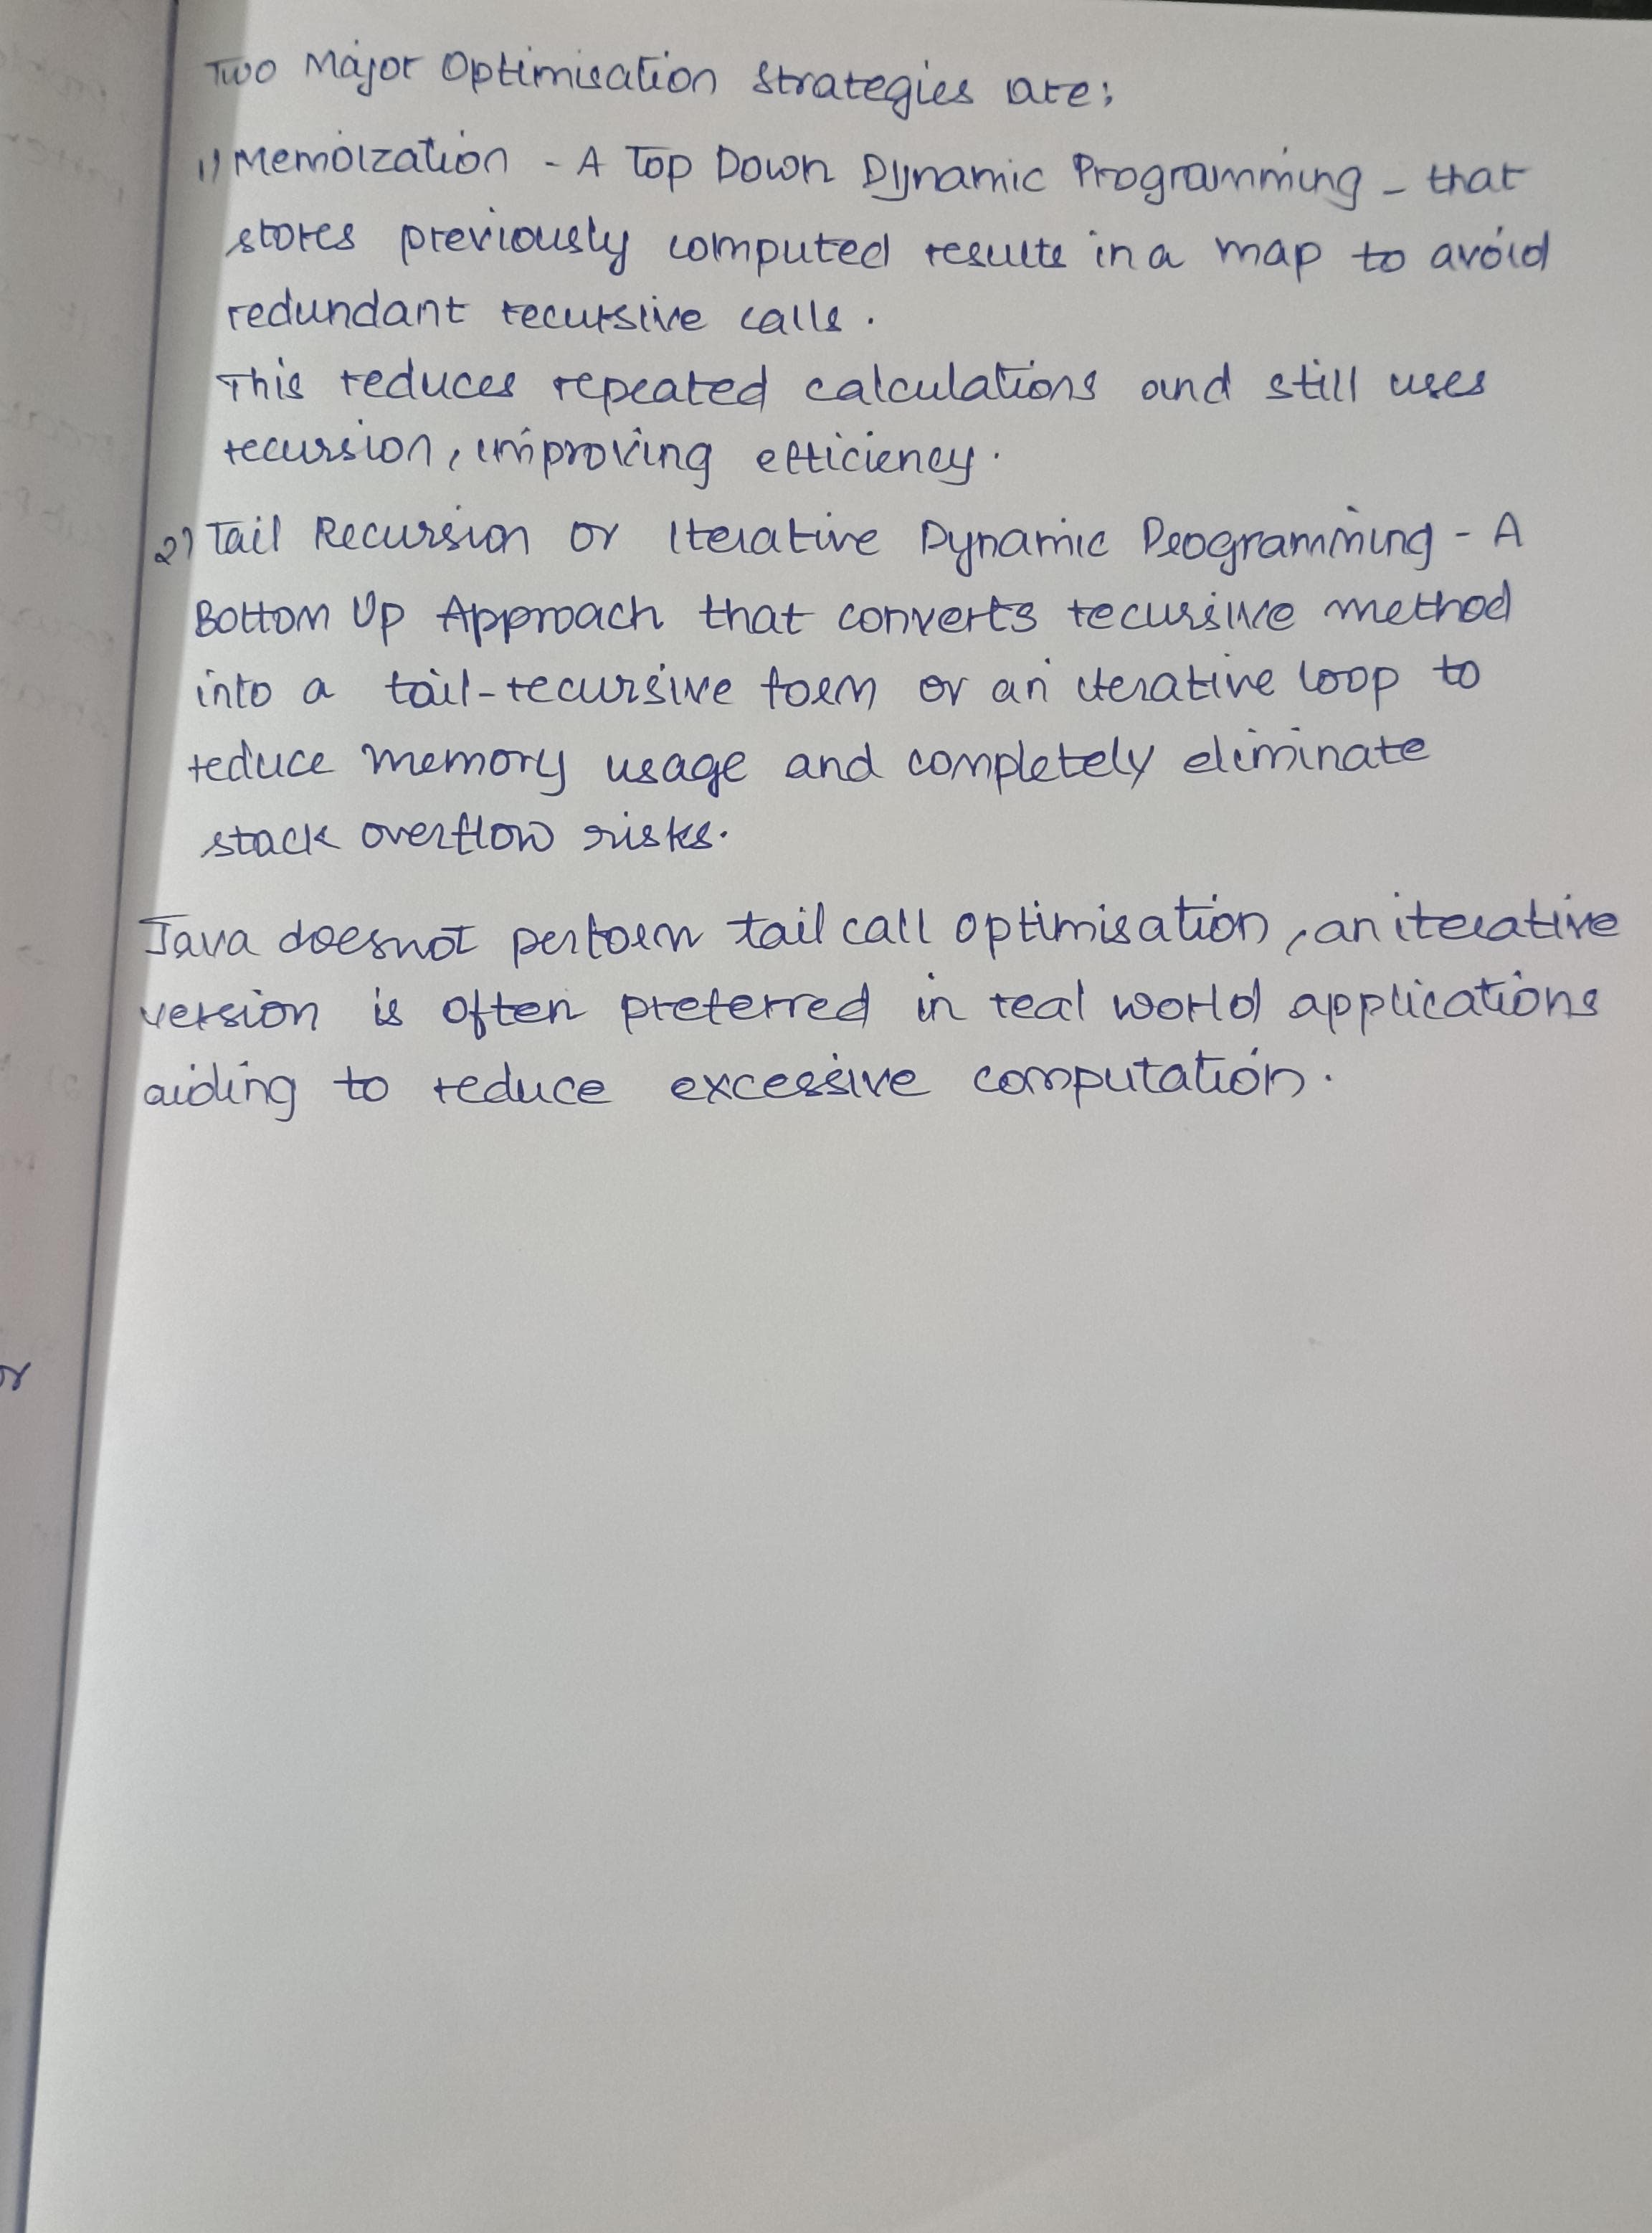 Two Major Optimisation Strategies are:
1) Memoization - A Top Down Dynamic Programming - that
stores previously computed results in a map to avoid
redundant recursive calls.
This reduces repeated calculations and still uses
recursion, improving efficiency.
2) Tail Recursion or Iterative Dynamic Programming - A
Bottom Up Approach that converts recursive method
into a tail-recursive form or an iterative loop to
reduce memory usage and completely eliminate
stack overflow risks.
Java doesnot perform tail call optimisation, an iterative
version is often preferred in real world applications
aiding to reduce excessive computation.
or